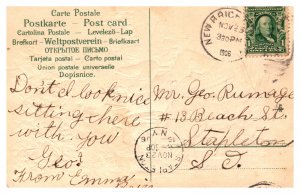 Carte Postale
Postkarte — Post card
Cartolina Postale — Levelező-Lap
Brefkort — Weltpostverein — Briefkaart
ОТКРЫТОЕ ПИСЬМО
Tarjeta postal — Carta postal
Union postale universelle
Dopisnice.
NEW BRIGH
NOV 23
330 PM
1906
Don't I look nice
sitting here
with you
Geo?
From Emma
Mr. Geo. Rumage
#13 Beach St.
Stapleton
S. I.
NOV 23